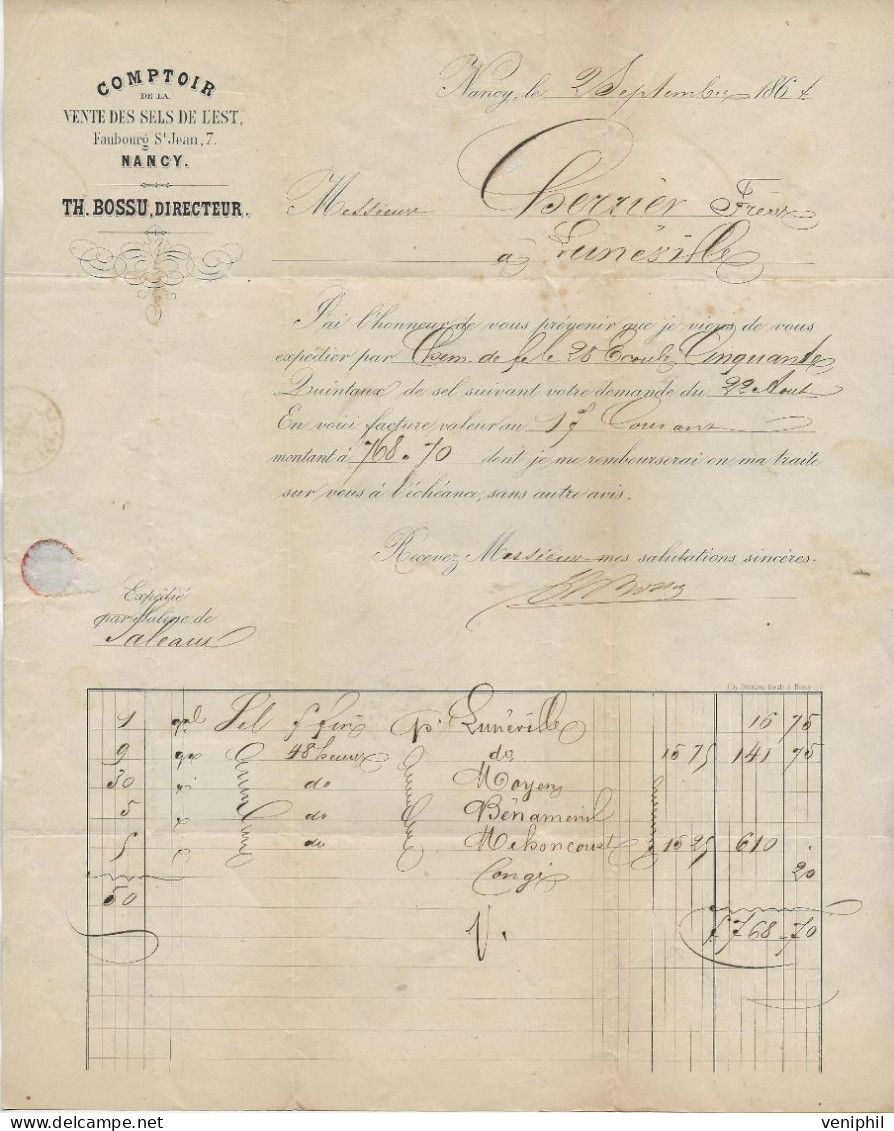 COMPTOIR
DE LA
VENTE DES SELS DE L'EST,
Faubourg St Jean, 7.
NANCY.
TH. BOSSU, DIRECTEUR.
Nancy, le 2 Septembre 1864
Messieurs Cherrier Frères
à Lunéville
J'ai l'honneur de vous prévenir que je viens de vous
expédier par Chem. de fer le 28 Ecoulé Cinquante
Quintaux de sel suivant votre demande du 22 Aout
En voici facture valeur au Courant
montant à 768.70 dont je me rembourserai en ma traite
sur vous à l'échéance, sans autre avis.
Recevez Messieurs mes salutations sincères.
Expédié
par Saline de
Saléaux
1 qal Sel f fin pr Lunéville 16 75
9 qx 48 heures do 15 75 141 75
30 x do Moyen
5 x do Bénaménil
5 x do Mehoncourt 15 25 610 .
Congé 20
50
f 768-70
veniphil